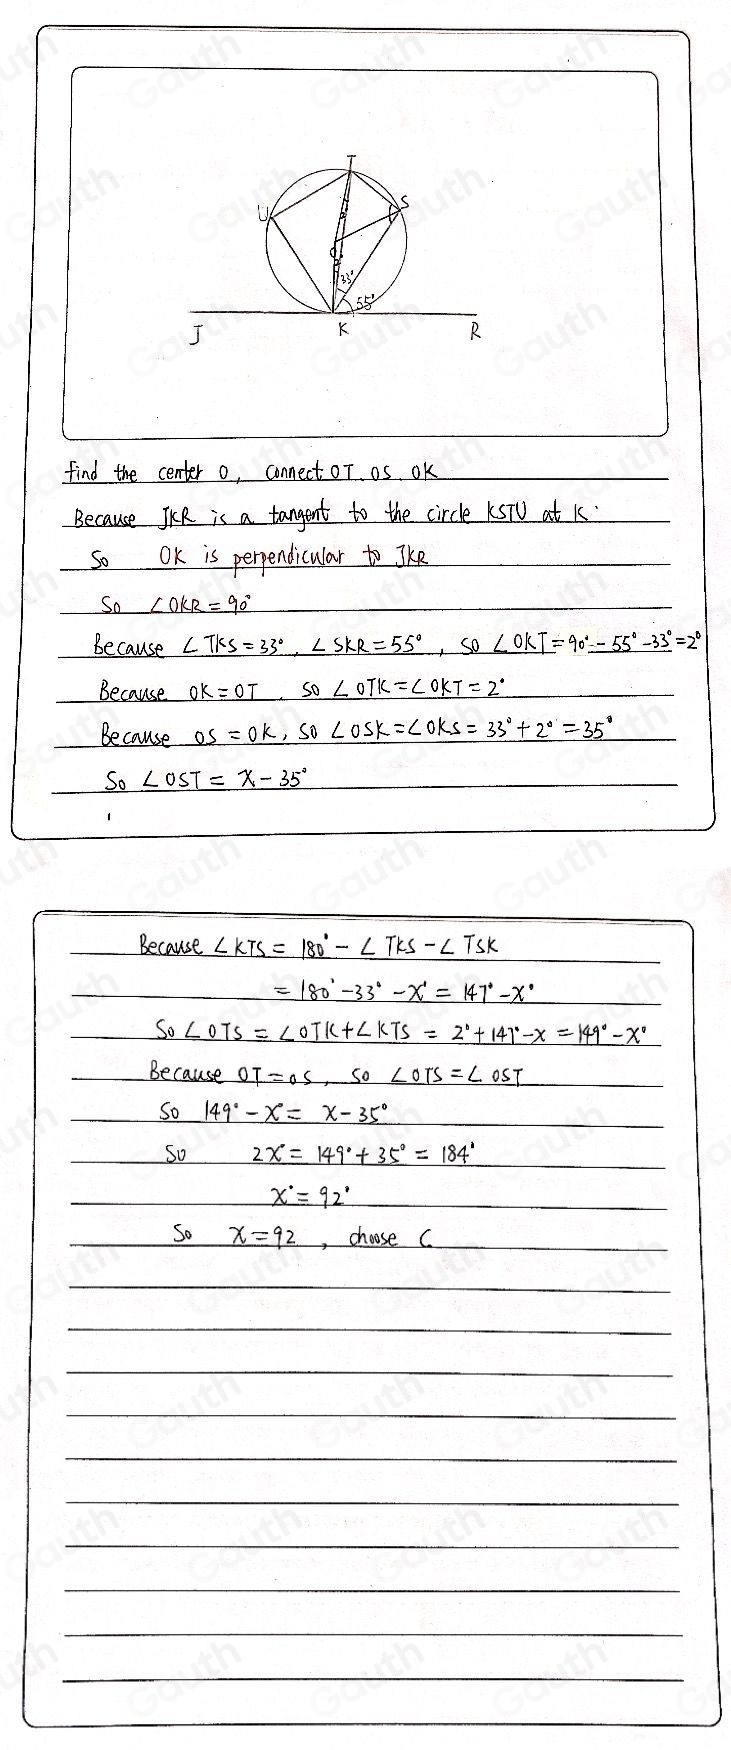 T
U
S
O
2°
2°
33°
55°
J
K
R
find the center O, connect OT OS OK
Because JKR is a tangent to the circle KSTU at K.
So OK is perpendicular to JKR
So ∠OKR = 90°
Because ∠TKS = 33°, ∠SKR = 55°, so ∠OKT = 90° - 55° - 33° = 2°
Because OK = OT, so ∠OTK = ∠OKT = 2°
Because OS = OK, so ∠OSK = ∠OKS = 33° + 2° = 35°
So ∠OST = x - 35°
Because ∠KTS = 180° - ∠TKS - ∠TSK
= 180° - 33° - x° = 147° - x°
So ∠OTS = ∠OTK + ∠KTS = 2° + 147° - x = 149° - x°
Because OT = OS, so ∠OTS = ∠OST
So 149° - x° = x - 35°
So 2x° = 149° + 35° = 184°
x° = 92°
So x = 92, choose C
Gauth